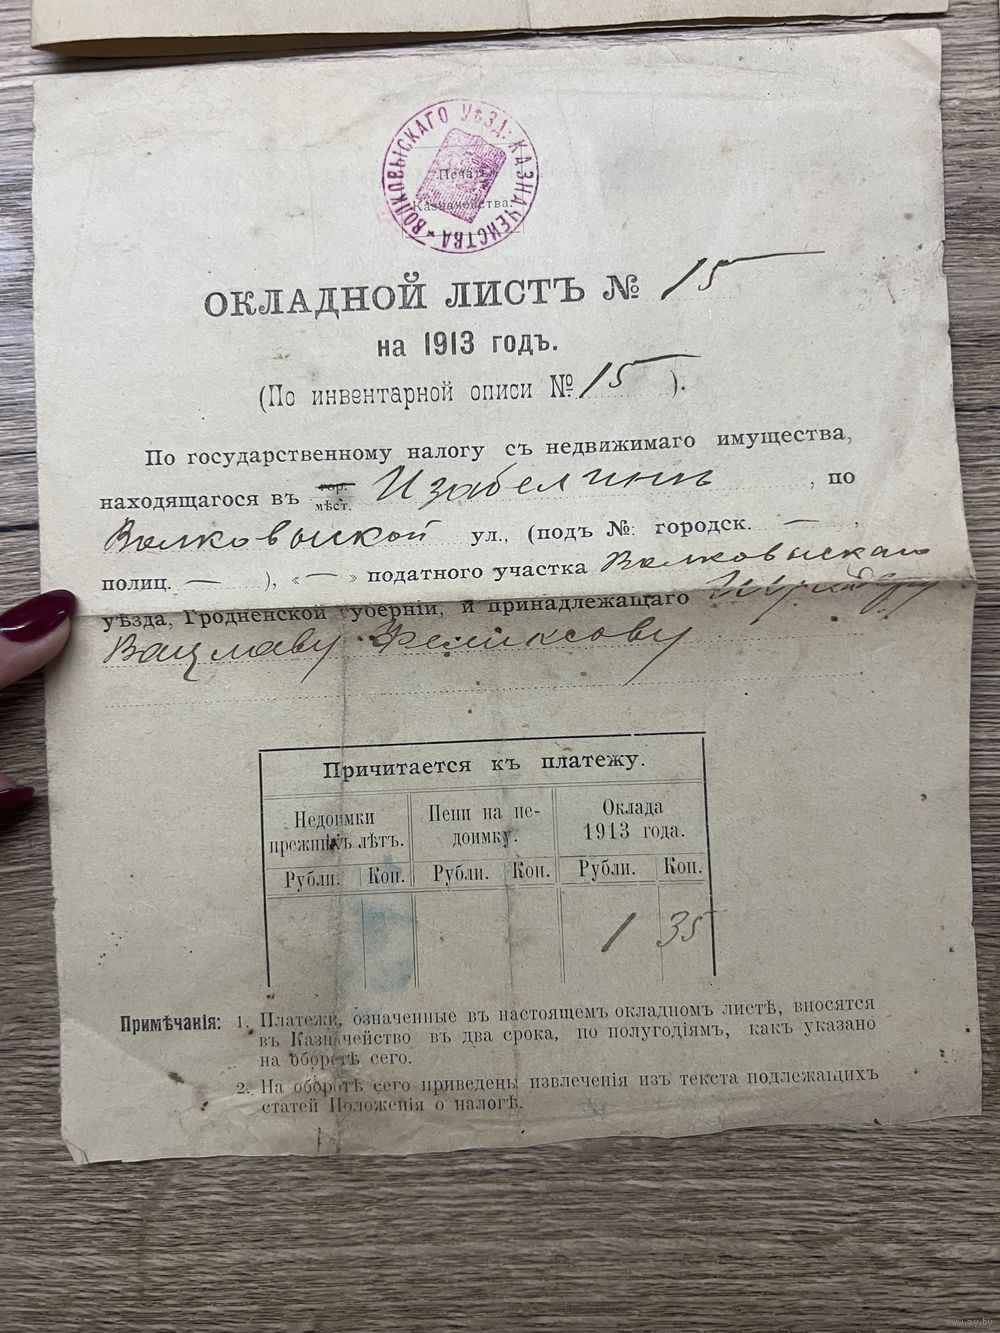 ВОЛКОВЫСКАГО УѢЗД. КАЗНАЧЕЙСТВА
Печать
Казначейства.
ОКЛАДНОЙ ЛИСТЪ № 15
на 1913 годъ.
(По инвентарной описи № 15 ).
По государственному налогу съ недвижимаго имущества,
находящагося въ гор. мѣст. Изабелинъ , по
Волковыской ул., (подъ №: городск. — ,
полиц. — ), « — » податного участка Волковыскаго
уѣзда, Гродненской губерніи, и принадлежащаго
Вацлаву Феликсову
Причитается къ платежу.
Недоимки прежнихъ лѣтъ.
Пени на недоимку.
Оклада 1913 года.
Рубли. Коп. Рубли. Коп. Рубли. Коп.
1 35
Примѣчанія: 1. Платежи, означенные въ настоящемъ окладномъ листѣ, вносятся
въ Казначейство въ два срока, по полугодіямъ, какъ указано
на оборотѣ сего.
2. На оборотѣ сего приведены извлеченія изъ текста подлежащихъ
статей Положенія о налогѣ.
www.ay.by